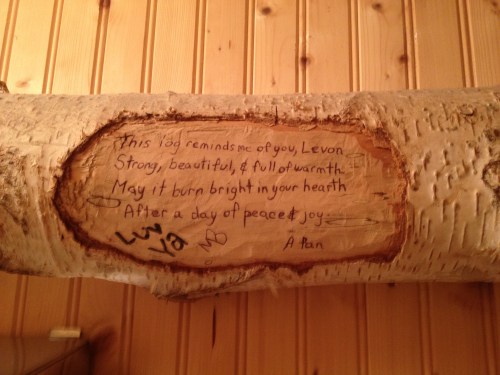 This log reminds me of you, Levon
Strong, beautiful, & full of warmth.
May it burn bright in your hearth
After a day of peace & joy
Luv
Ya
A Fan